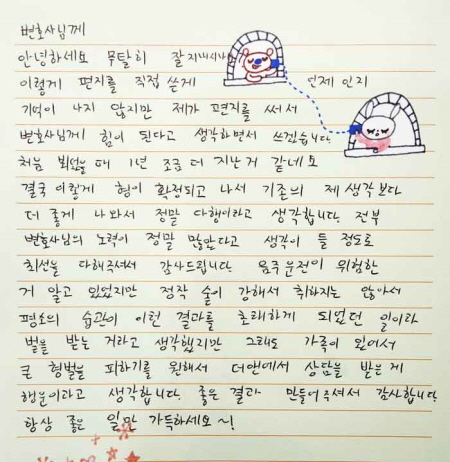 변호사님께
안녕하세요 무탈히 잘지내시나
이렇게 편지를 직접 쓴게 언제인지
기억이 나지 않지만 제가 편지를 써서
변호사님께 힘이 된다고 생각하면서 쓰겠습니다
처음 뵈었을 때 1년 조금 더 지난거 같네요
결국 이렇게 형이 확정되고 나서 기존의 제 생각보다
더 좋게 나와서 정말 다행이라고 생각합니다. 전부
변호사님의 노력이 정말 많았다고 생각이 들 정도로
최선을 다해주셔서 감사드립니다. 음주운전이 위험한
거 알고 있었지만 정작 술이 강해서 취하지는 않아서
평소의 습관이 이런 결과를 초래하게 되었던 일이라
벌을 받는 거라고 생각했지만 그래도 가족이 있어서
큰 형벌을 피하기를 원해서 더앤에서 상담을 받은게
행운이라고 생각합니다. 좋은 결과 만들어 주셔서 감사합니다.
항상 좋은 일만 가득하세요~!